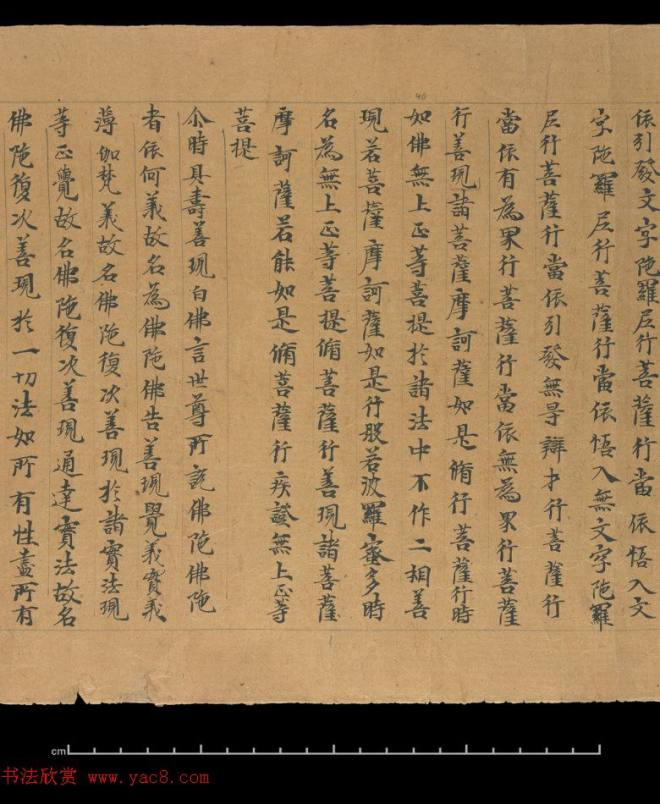 依引發文字陁羅尼行菩薩行當依悟入文
字陁羅尼行菩薩行當依悟入無文字陁羅
尼行菩薩行當依引發無㝵辯才行菩薩行
當依有為界行菩薩行當依無為界行菩薩
行善現諸菩薩摩訶薩如是脩行菩薩行時
如佛無上正等菩提於諸法中不作二相善
現若菩薩摩訶薩如是行般若波羅蜜多時
名為無上正等菩提脩菩薩行善現諸菩薩
摩訶薩若能如是脩菩薩行疾證無上正等
菩提
尒時具壽善現白佛言世尊所說佛陁佛陁
者依何義故名為佛陁佛告善現覺義實義
薄伽梵義故名佛陁復次善現於諸實法現
等正覺故名佛陁復次善現通達實法故名
佛陁復次善現於一切法如所有性盡所有
40
cm
书法欣赏 www.yac8.com